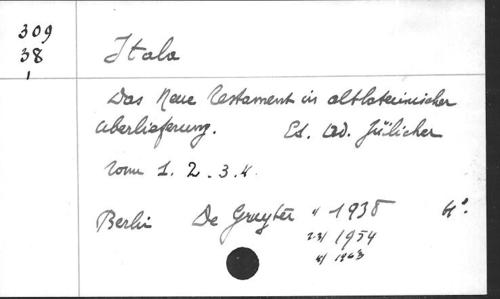 309
38
Itala
Das Neue Testament in altlateinischer
Überlieferung. Ed. Ad. Jülicher
1. 2. 3. 4.
Berlin De Gruyter 1/ 1938 4°.
2-3/ 1954
4/ 1963